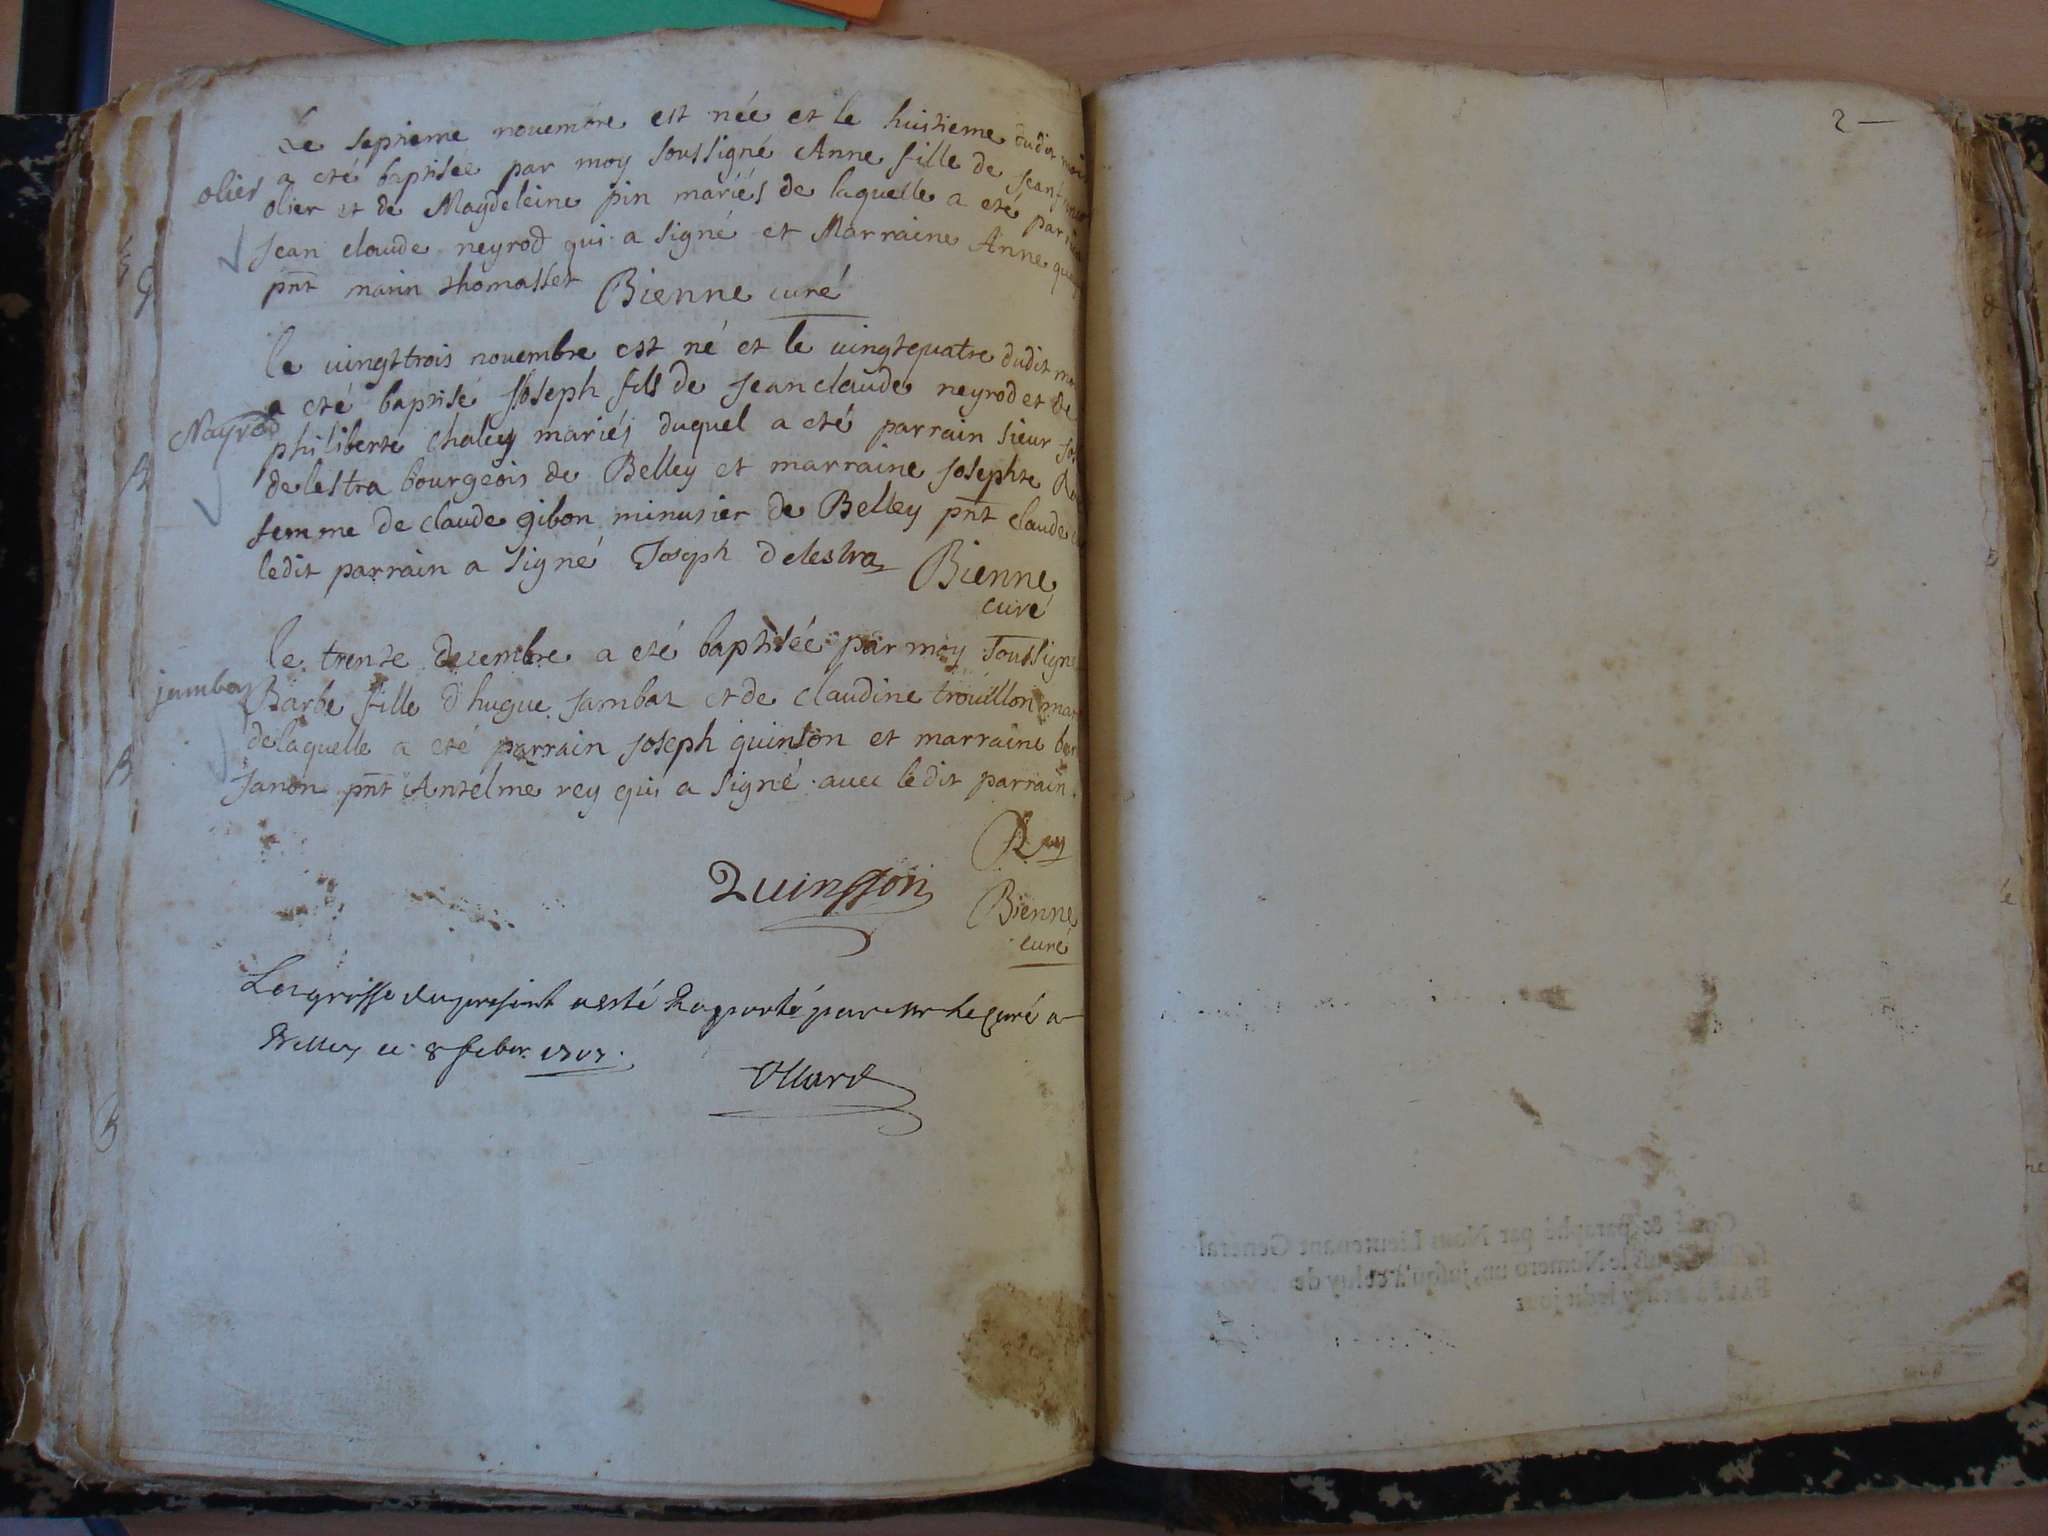 Le septieme nouembre est née et le huitieme dudit mois
a eté baptisée par moy soussigné Anne fille de Jean
olier
olier et de Magdeleine pin mariés de laquelle a eté parrain
Jean claude neyrod qui a signé et Marraine Anne
pnt marin thomasset Bienne curé
le uingttrois nouembre est né et le uingtquatre dudit
a eté baptisé Joseph fils de Jean claude neyrod et de
Nayrod
philiberte chaley mariés duquel a eté parrain sieur
delestra bourgeois de Belley et marraine Josephte
femme de claude gibon minusier de Belley pnt claude
ledit parrain a signé Joseph Delestra Bienne
curé
le trente decembre a eté baptisée par moy soussigné
jambaz
Barbe fille d'hugue Jambaz et de claudine trouillon
de laquelle a eté parrain Joseph quinson et marraine
Janon pnt Antelme rey qui a signé auec ledit parrain.
Rey
Quinsson
Bienne
curé
La grosse du present a esté Raporté par mr le curé a
Belley ce 8 feber.
2
Cotté & paraphé par Nous Lieutenant General
sous le Numero un, jusqu'à celuy de
Fait à Belley ledit jour